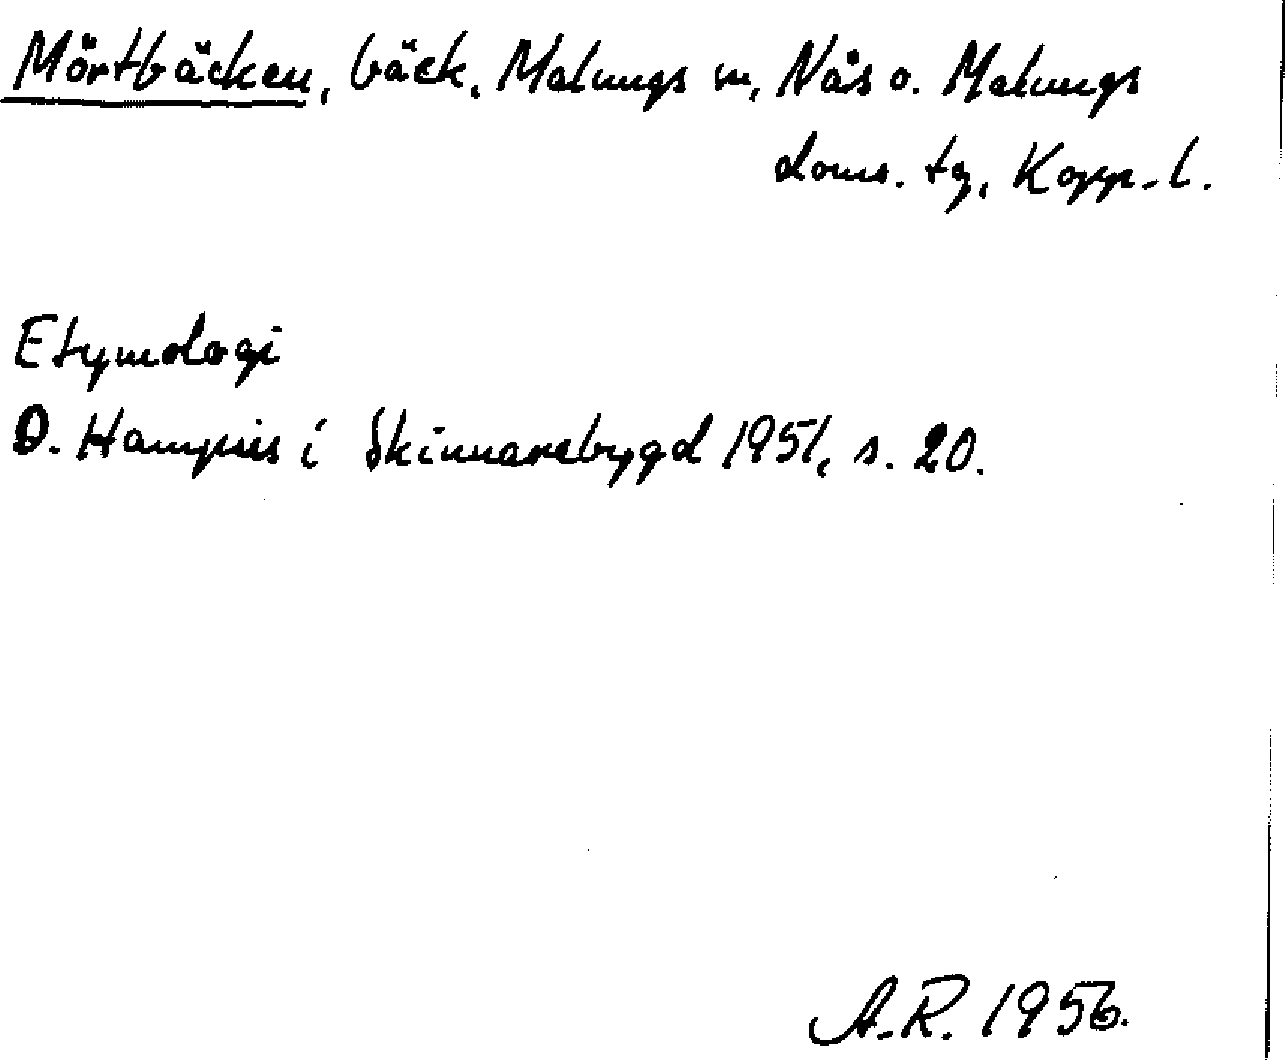 Mörtbäcken, bäck, Malungs sn, Nås o. Malungs
doms. tg, Kopp. l.
Etymologi
O. Hampus i Skinnarebygd 1951, s. 20.
A.R. 1956.